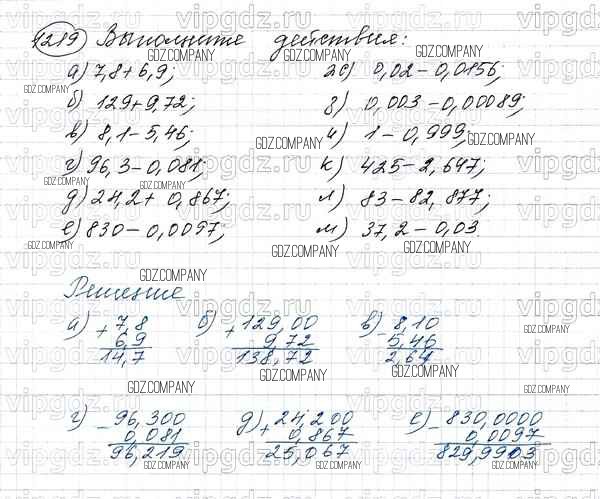 1219 Выполните действия:
а) 7,8+6,9; ж) 0,02-0,0156;
б) 129+9,72; з) 0,003-0,00089;
в) 8,1-5,46; и) 1-0,999;
г) 96,3-0,081; к) 425-2,647;
д) 24,2+0,867; л) 83-82,877;
е) 830-0,0097; м) 37,2-0,03
Решение
а) + 7,8 б) + 129,00 в) - 8,10
6,9 9,72 5,46
14,7 138,72 2,64
г) - 96,300 д) + 24,200 е) - 830,0000
0,081 0,867 0,0097
96,219 25,067 829,9903
GDZ.COMPANY
vipgdz.ru